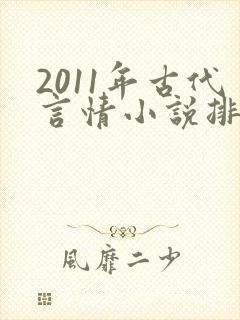 2011年古代
言情小說排
風靡二少